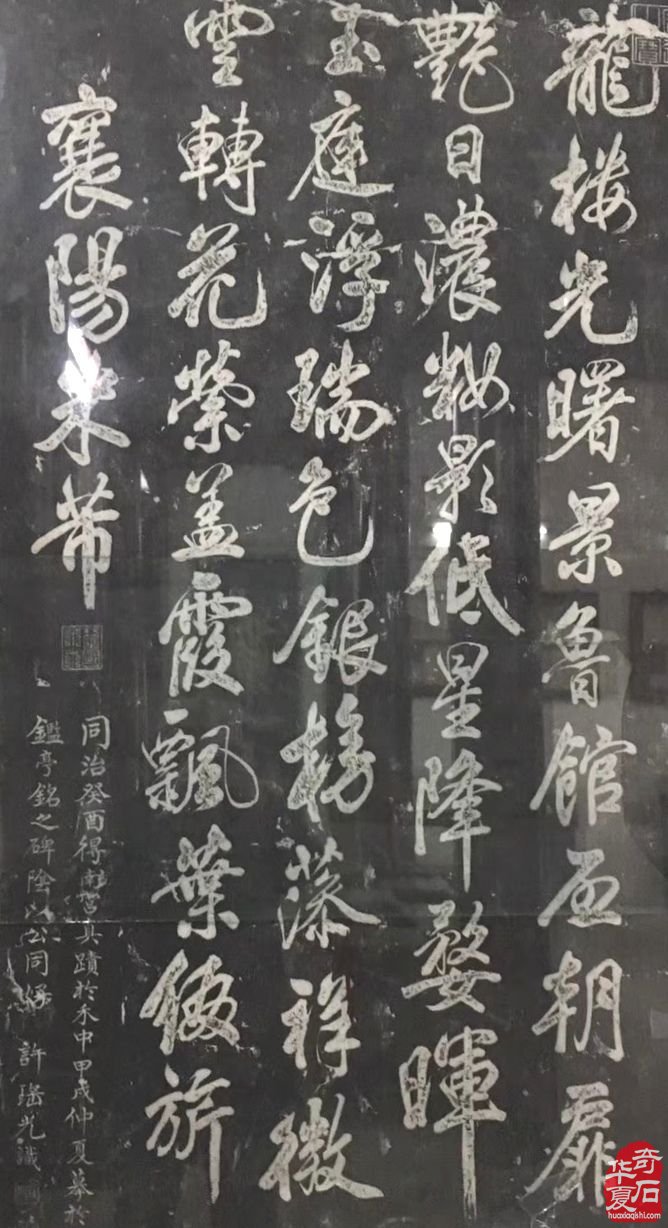 龍楼光曙景魯館啓朝扉
艷日濃粧影低星降婺暉
玉庭浮瑞色銀榜藻祥徽
雲轉花縈盖霞飄葉綴旂
襄陽米芾
同治癸酉得南宮真蹟於禾中甲戌仲夏摹於
鑑亭銘之碑陰以公同好 許瑤光識
华夏奇石
huaxiaqishi.com